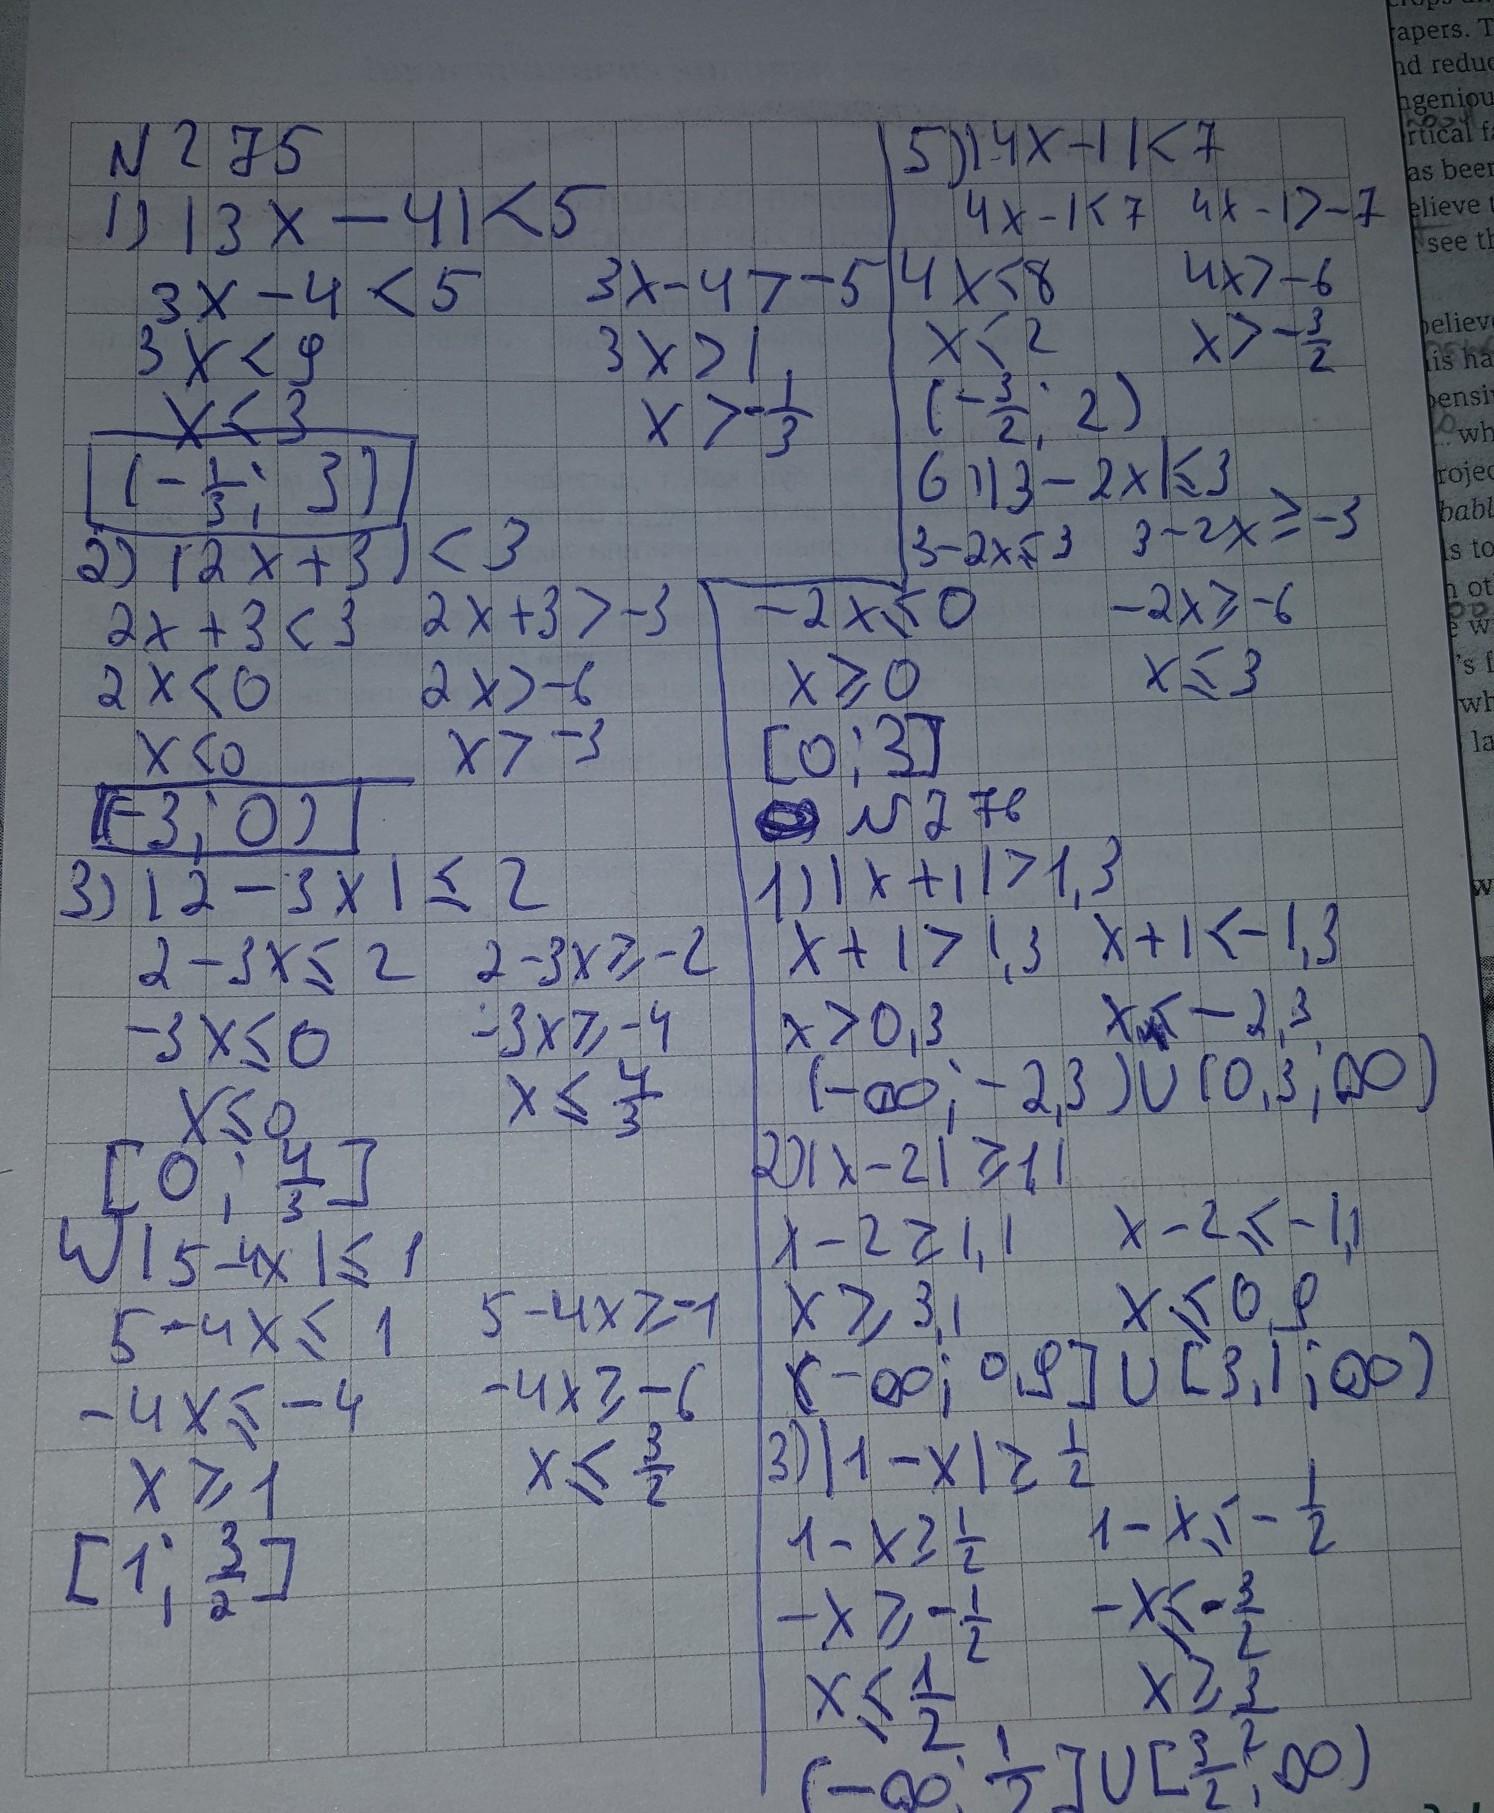 N 275
1) |3x - 4| < 5
3x - 4 < 5 3x - 4 > -5
3x < 9 3x > 1
x < 3 x > -1/3
(-1/3; 3)
2) |2x + 3| < 3
2x + 3 < 3 2x + 3 > -3
2x < 0 2x > -6
x < 0 x > -3
(-3; 0)
3) |2 - 3x| ≤ 2
2 - 3x ≤ 2 2 - 3x ≥ -2
-3x ≤ 0 -3x ≥ -4
x ≤ 0 x ≤ 4/3
[0; 4/3]
4) |5 - 4x| ≤ 1
5 - 4x ≤ 1 5 - 4x ≥ -1
-4x ≤ -4 -4x ≥ -6
x ≥ 1 x ≤ 3/2
[1; 3/2]
5) |4x - 1| < 7
4x - 1 < 7 4x - 1 > -7
4x < 8 4x > -6
x < 2 x > -3/2
(-3/2; 2)
6) |3 - 2x| ≤ 3
3 - 2x ≤ 3 3 - 2x ≥ -3
-2x ≤ 0 -2x ≥ -6
x ≥ 0 x ≤ 3
[0; 3]
N 276
1) |x + 1| > 1,3
x + 1 > 1,3 x + 1 < -1,3
x > 0,3 x < -2,3
(-∞; -2,3) ∪ (0,3; ∞)
2) |x - 2| ≥ 1,1
x - 2 ≥ 1,1 x - 2 ≤ -1,1
x ≥ 3,1 x ≤ 0,9
(-∞; 0,9] ∪ [3,1; ∞)
3) |1 - x| ≥ 1/2
1 - x ≥ 1/2 1 - x ≤ -1/2
-x ≥ -1/2 -x ≤ -3/2
x ≤ 1/2 x ≥ 3/2
(-∞; 1/2] ∪ [3/2; ∞)
apers. T
nd reduc
ngeniou
rtical f
as been
elieve t
see th
believ
is ha
pensi
wh
roje
babl
s to
n ot
e w
's f
wh
la
w